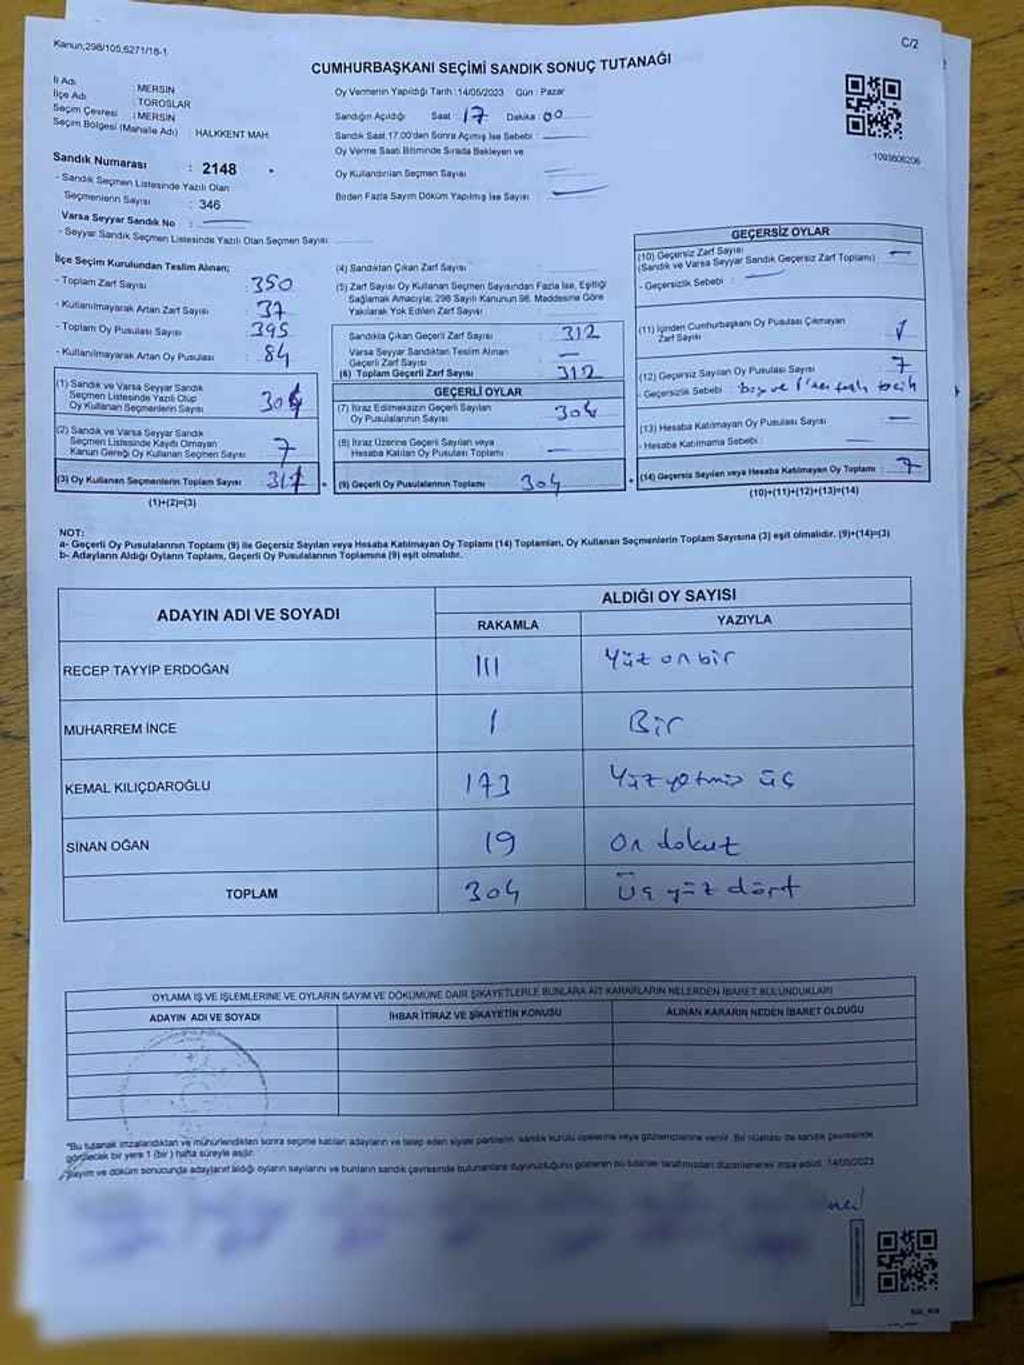 Kanun;298/105,6271/18-1
C/2
CUMHURBAŞKANI SEÇİMİ SANDIK SONUÇ TUTANAĞI
İl Adı : MERSİN
İlçe Adı : TOROSLAR
Seçim Çevresi : MERSİN
Seçim Bölgesi (Mahalle Adı) HALKKENT MAH.
Oy Vermenin Yapıldığı Tarih :14/05/2023 Gün : Pazar
Sandığın Açıldığı Saat : 17 Dakika : 00
Sandık Saat 17.00'den Sonra Açılmış İse Sebebi :
Oy Verme Saati Bitiminde Sırada Bekleyen ve
Oy Kullandırılan Seçmen Sayısı
Birden Fazla Sayım Döküm Yapılmış İse Sayısı :
1093606206
Sandık Numarası : 2148
- Sandık Seçmen Listesinde Yazılı Olan
Seçmenlerin Sayısı : 346
Varsa Seyyar Sandık No :
- Seyyar Sandık Seçmen Listesinde Yazılı Olan Seçmen Sayısı
İlçe Seçim Kurulundan Teslim Alınan;
- Toplam Zarf Sayısı : 350
- Kullanılmayarak Artan Zarf Sayısı : 37
- Toplam Oy Pusulası Sayısı : 395
- Kullanılmayarak Artan Oy Pusulası : 84
(1) Sandık ve Varsa Seyyar Sandık
Seçmen Listesinde Yazılı Olup
Oy Kullanan Seçmenlerin Sayısı
(2) Sandık ve Varsa Seyyar Sandık
Seçmen Listesinde Kayıtlı Olmayan
Kanun Gereği Oy Kullanan Seçmen Sayısı : 7
(3) Oy Kullanan Seçmenlerin Toplam Sayısı
(1)+(2)=(3)
(4) Sandıktan Çıkan Zarf Sayısı :
(5) Zarf Sayısı Oy Kullanan Seçmen Sayısından Fazla İse, Eşitliği
Sağlamak Amacıyla; 298 Sayılı Kanunun 98. Maddesine Göre
Yakılarak Yok Edilen Zarf Sayısı :
Sandıkta Çıkan Geçerli Zarf Sayısı : 312
Varsa Seyyar Sandıktan Teslim Alınan
Geçerli Zarf Sayısı :
(6) Toplam Geçerli Zarf Sayısı : 312
GEÇERLİ OYLAR
(7) İtiraz Edilmeksizin Geçerli Sayılan
Oy Pusulalarının Sayısı : 304
(8) İtiraz Üzerine Geçerli Sayılan veya
Hesaba Katılan Oy Pusulası Toplamı :
(9) Geçerli Oy Pusulalarının Toplamı : 304
GEÇERSİZ OYLAR
(10) Geçersiz Zarf Sayısı
(Sandık ve Varsa Seyyar Sandık Geçersiz Zarf Toplamı) :
- Geçersizlik Sebebi :
(11) İçinden Cumhurbaşkanı Oy Pusulası Çıkmayan
Zarf Sayısı : 1
(12) Geçersiz Sayılan Oy Pusulası Sayısı : 7
- Geçersizlik Sebebi : boş ve 1'den fazla tercih
(13) Hesaba Katılmayan Oy Pusulası Sayısı :
- Hesaba Katılmama Sebebi :
(14) Geçersiz Sayılan veya Hesaba Katılmayan Oy Toplamı : 7
(10)+(11)+(12)+(13)=(14)
NOT:
a- Geçerli Oy Pusulalarının Toplamı (9) ile Geçersiz Sayılan veya Hesaba Katılmayan Oy Toplamı (14) Toplamları, Oy Kullanan Seçmenlerin Toplam Sayısına (3) eşit olmalıdır. (9)+(14)=(3)
b- Adayların Aldığı Oyların Toplamı, Geçerli Oy Pusulalarının Toplamına (9) eşit olmalıdır.
ADAYIN ADI VE SOYADI ALDIĞI OY SAYISI
RAKAMLA YAZIYLA
RECEP TAYYİP ERDOĞAN 111 Yüz on bir
MUHARREM İNCE 1 Bir
KEMAL KILIÇDAROĞLU 173 Yüz yetmiş üç
SİNAN OĞAN 19 On dokuz
TOPLAM 304 Üç yüz dört
OYLAMA İŞ VE İŞLEMLERİNE VE OYLARIN SAYIM VE DÖKÜMÜNE DAİR ŞİKAYETLERLE BUNLARA AİT KARARLARIN NELERDEN İBARET BULUNDUKLARI
ADAYIN ADI VE SOYADI İHBAR İTİRAZ VE ŞİKAYETİN KONUSU ALINAN KARARIN NEDEN İBARET OLDUĞU
*Bu tutanak imzalandıktan ve mühürlendikten sonra seçime katılan adayların ve talep eden siyasi partilerin sandık kurulu üyelerine veya gözlemcilerine verilir. Bir nüshası da sandık çevresinde
görülecek bir yere 1 (bir) hafta süreyle asılır.
Sayım ve döküm sonucunda adayların aldığı oyların sayılarını ve bunların sandık çevresinde bulunanlara duyurulduğunu gösteren bu tutanak tarafımızdan düzenlenerek imza edildi. 14/05/2023